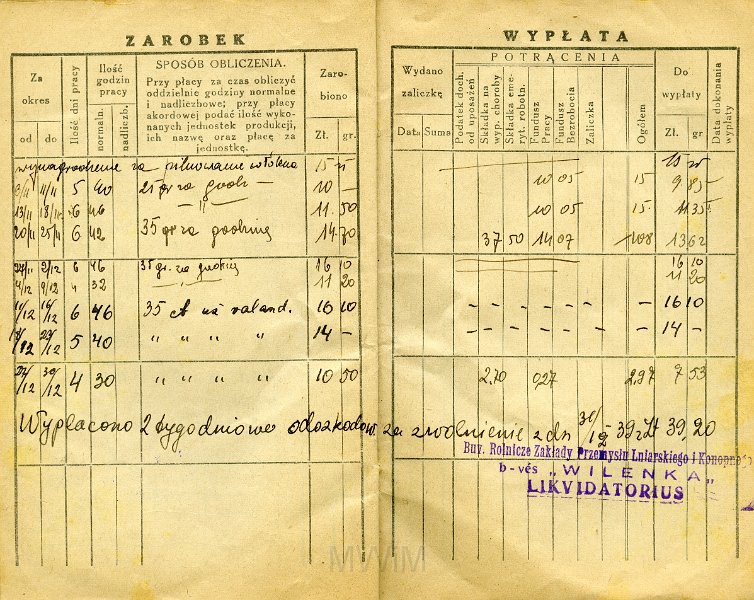 ZAROBEK
Za okres
od do
Ilość dni pracy
Ilość godzin pracy
normaln.
nadliczb.
SPOSÓB OBLICZENIA.
Przy płacy za czas obliczyć
oddzielnie godziny normalne
i nadliczbowe; przy płacy
akordowej podać ilość wyko-
nanych jednostek produkcji,
ich nazwę oraz płacę za
jednostkę.
Zaro-
biono
Zł. gr.
wynagrodzenie za pilnowanie włókna 15
11/11 5 40 25 gr za godz 10 —
13/11 18/11 6 46 11 50
20/11 25/11 6 42 35 gr za godzinę 14 70
2/12 6 46 35 gr. za godzinę 16 10
4/12 9/12 32 11 20
11/12 16/12 6 46 35 ct už valand. 16 10
18/12 23/12 5 40 " " " " 14 —
27/12 30/12 4 30 " " " " 10 50
WYPŁATA
Wydano
zaliczkę
Data Suma
POTRĄCENIA
Podatek doch. od uposażeń
Składka na wyp. choroby
Składka eme- ryt. robotn.
Fundusz Pracy
Fundusz Bezrobocia
Zaliczka
Ogółem
Do
wypłaty
Zł. gr
Data dokonania wypłaty
15
10 05 15 9.85
10 05 15 11.35
37 50 14 07 108 13 62
16 10
11 20
– – – – – – 16 10
– – – – – – 14 –
2.70 0.27 2,97 7 53
Wypłacono 2 tygodniowe odszkodow. za zwolnienie z dn 30/12 39 zł 39,20
Buv. Rolnicze Zakłady Przemysłu Lniarskiego i Konopnego
b-vės „WILENKA"
LIKVIDATORIUS
MWiM